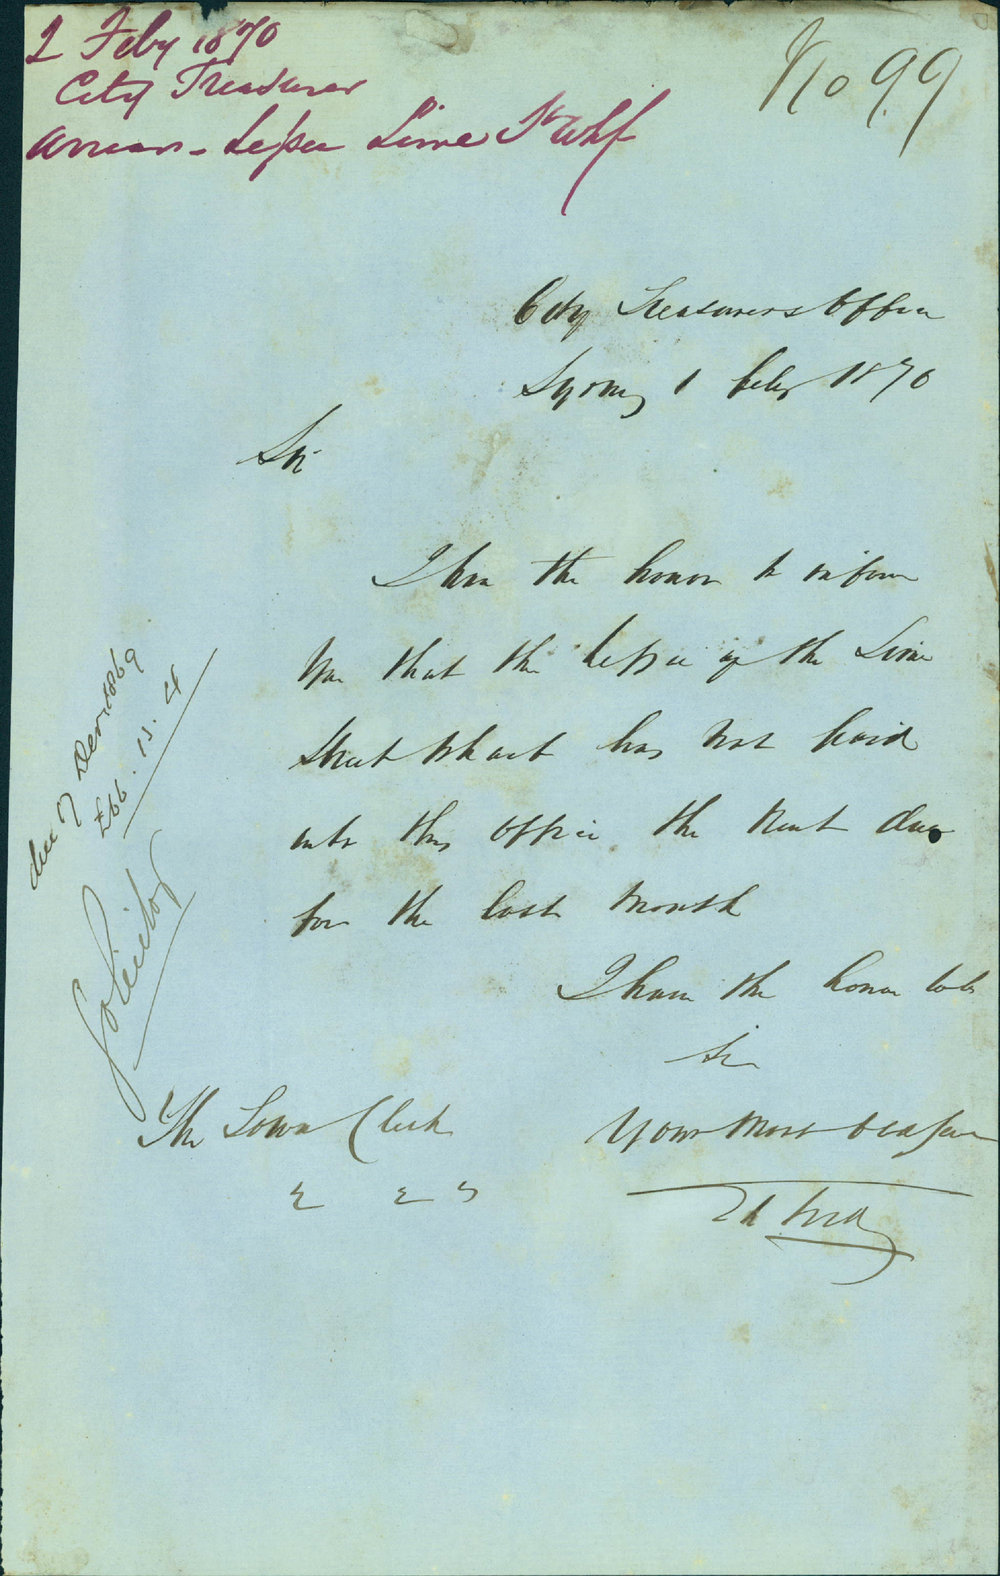 2 Feby 1870
No 99
City Treasurer
Arrears - Lessee Lime St Whf
City Treasurers Office
Sydney 1 Feby 1870
Sir
I have the honor to inform
you that the Lessee of the Lime
Street Wharf has not paid
into this office the Rent due
for the last Month
I have the honor to be
Sir
Your Most Obedient
The Town Clerk
due 7 Decr 1869
£66. 13. 4
Solicitor